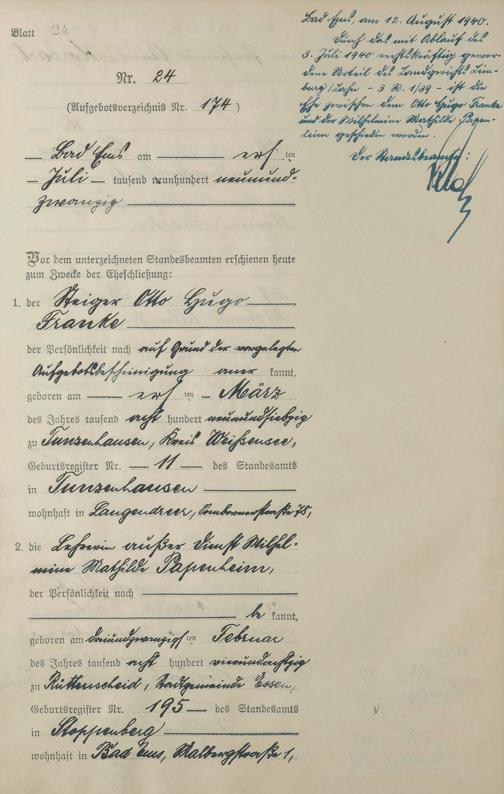 Blatt 24
Bad Ems, am 12. August 1940.
Durch das mit Ablauf des
3. Juli 1940 rechtskräftig gewor-
dene Urteil des Landgerichts Lim-
burg/Lahn – 3 R. 1/39 – ist die
Ehe zwischen dem Otto Hugo Franke
und der Wilhelmine Mathilde Papen-
heim geschieden worden.
Der Standesbeamte:
Nr. 24
(Aufgebotsverzeichnis Nr. 174)
Bad Ems am ersten
Juli tausend neunhundert neunund-
zwanzig
Vor dem unterzeichneten Standesbeamten erschienen heute
zum Zwecke der Eheschließung:
1. der Steiger Otto Hugo
Franke
der Persönlichkeit nach auf Grund der vorgelegten
Aufgebotsbescheinigung anerkannt,
geboren am ersten März
des Jahres tausend acht hundert neunundsiebzig
zu Tunzenhausen, Kreis Weißensee,
Geburtsregister Nr. 11 des Standesamts
in Tunzenhausen
wohnhaft in Langendreer, 78,
2. die Lehrerin außer Dienst Wilhel-
mine Mathilde Papenheim,
der Persönlichkeit nach
bekannt,
geboren am dreiundzwanzigsten Februar
des Jahres tausend acht hundert vierundachtzig
zu Rüttenscheid, Stadtgemeinde Essen,
Geburtsregister Nr. 195 des Standesamts
in Stoppenberg
wohnhaft in Bad Ems, Malbergstraße 1,